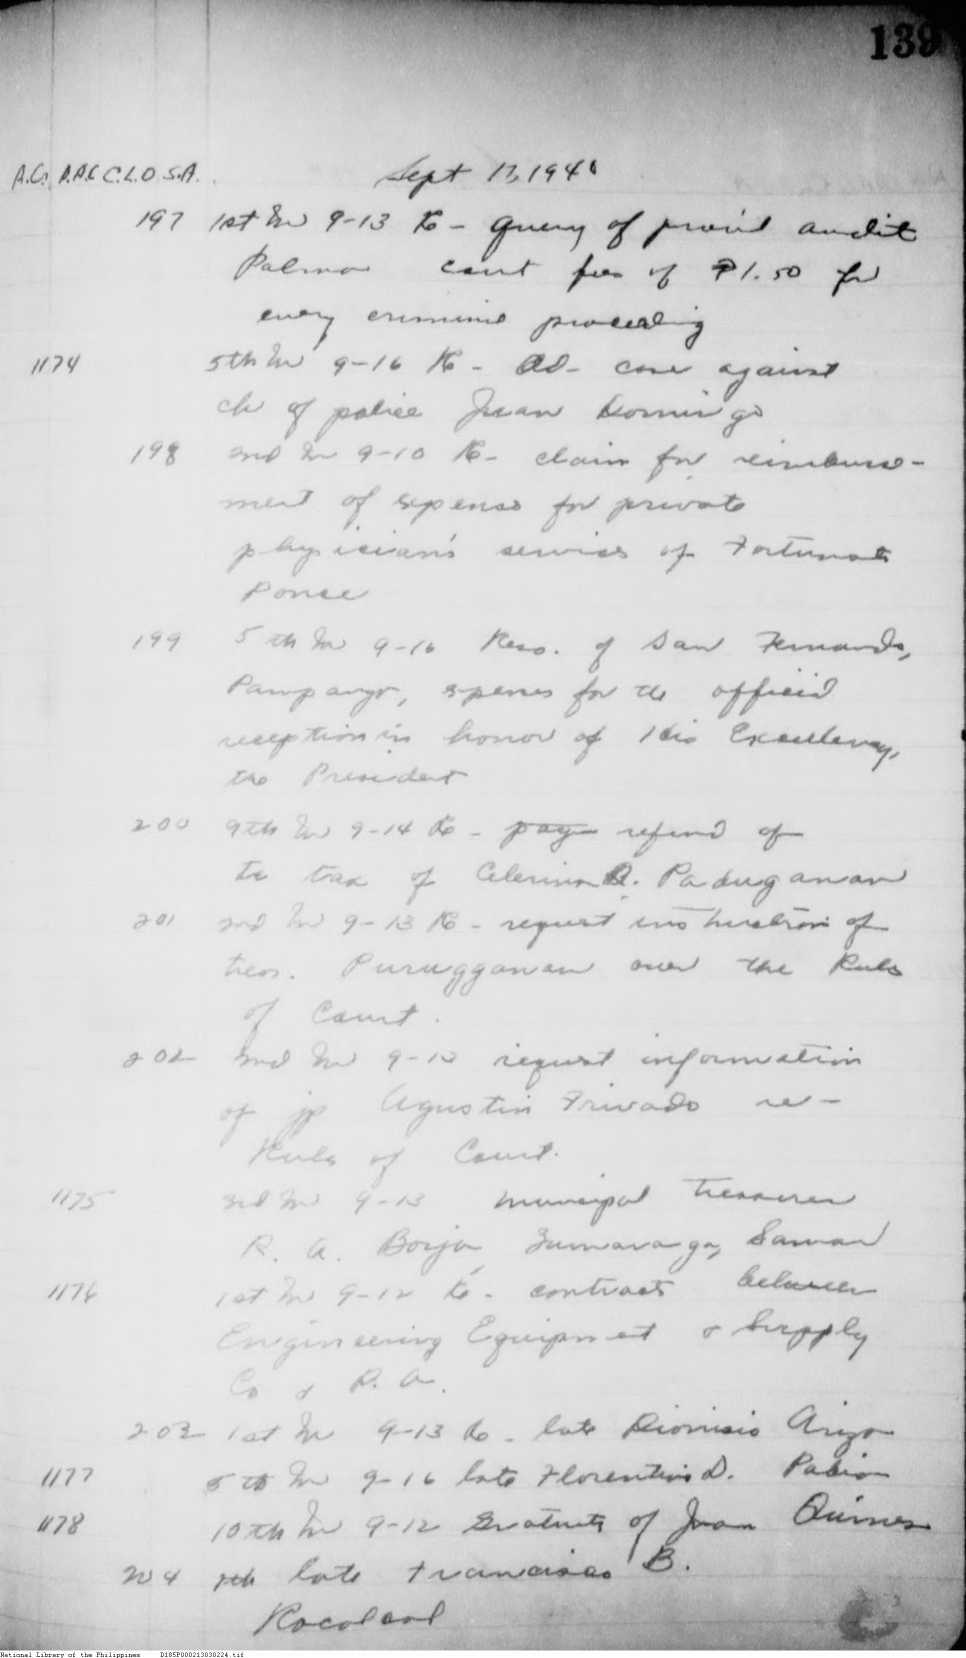 139
A.C. A.A.C C.L.O S.A. Sept 17, 1940
197 1st In 9-13 Re - Query of prov'l audit
Palma court fees of ₱1.50 for
every criminal proceeding
1174 5th In 9-16 Re - Ad- case against
ch of police Juan Domingo
198 2nd In 9-10 Re- claim for reimburse-
ment of expense for private
physician's services of Fortunato
Ponce
199 5th In 9-16 Reso. of San Fernando,
Pampanga, expenses for the official
reception in honor of His Excellency,
the President
200 9th In 9-14 Re - pay refund of
tax of Celerina Q. Paduganan
201 2nd In 9-13 Re - request instruction of
treas. Purugganan over the Rules
of Court.
202 2nd In 9-13 request information
of jp Agustin Privado re-
Rules of Court.
1175 3rd In 9-13 municipal treasurer
R. A. Borja, Zumarraga, Samar
1176 1st In 9-12 Re- contract between
Engineering Equipment & Supply
Co & P. A.
203 1st In 9-13 Re - late Dionisio
1177 5th In 9-16 late Florentino D.
1178 10th In 9-12 Gratuity of Juan Quines
204 7th late Francisco B.
National Library of the Philippines D185P000213030224.tif